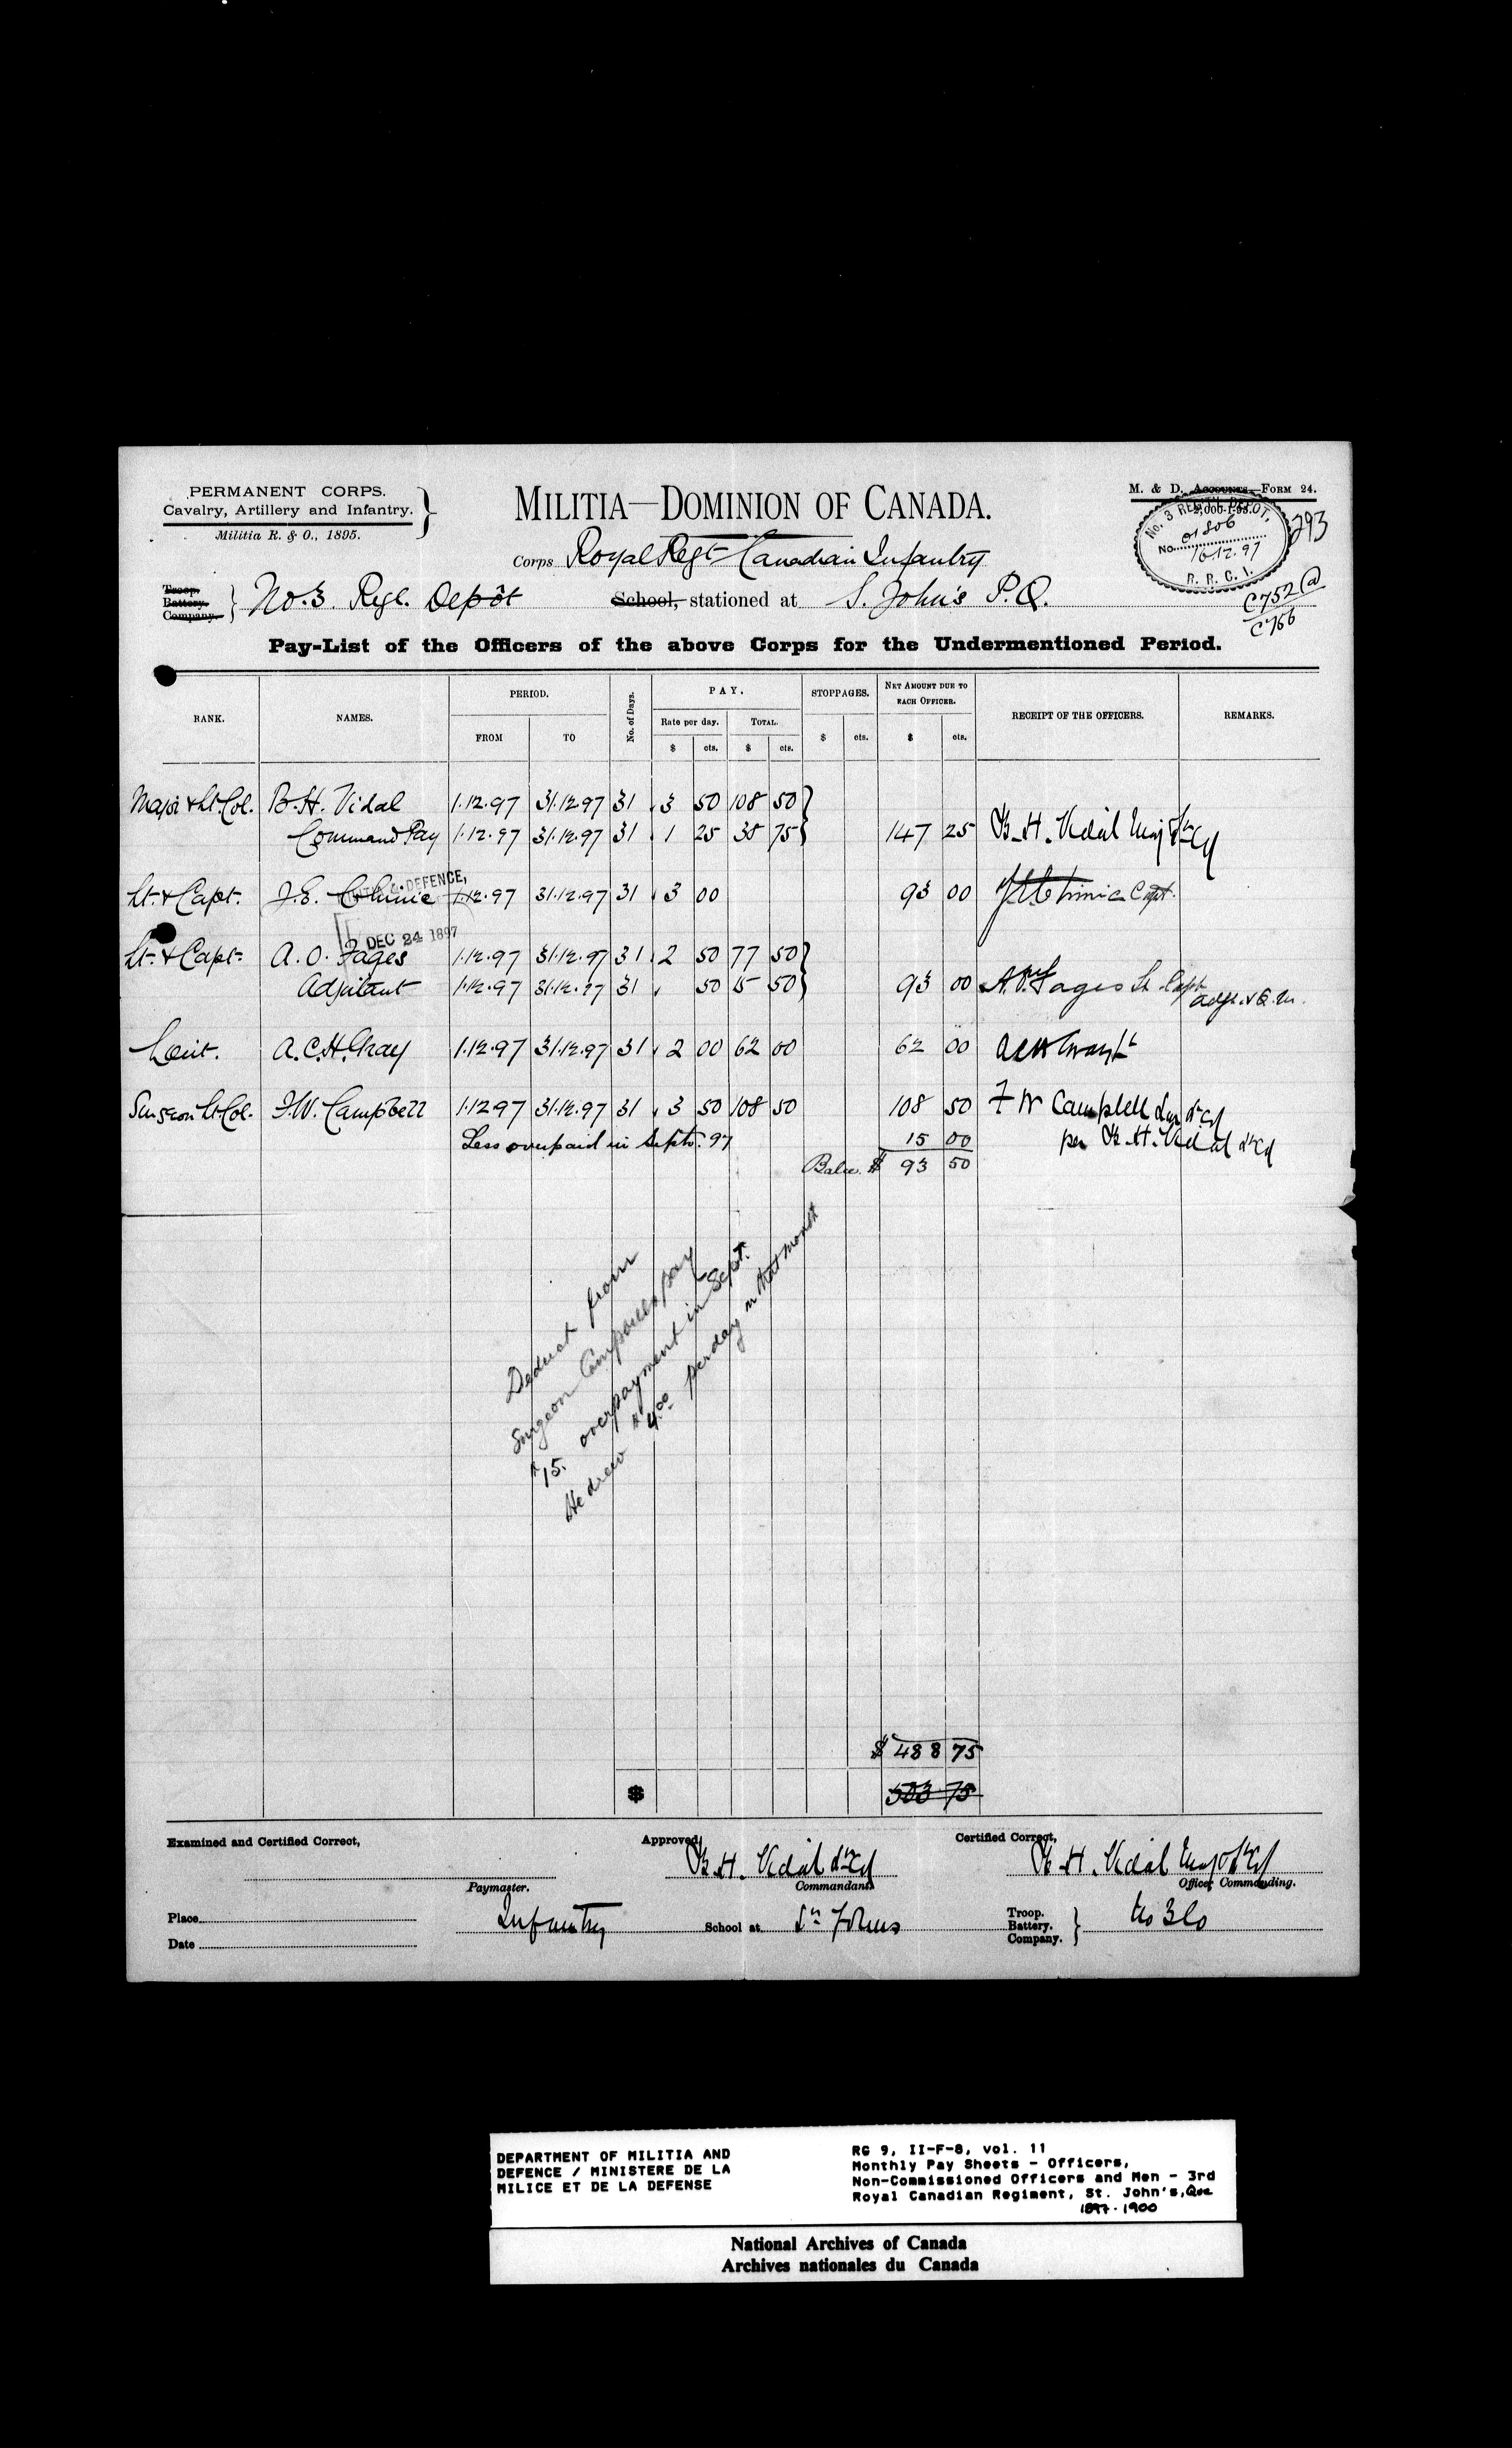 PERMANENT CORPS.
Cavalry, Artillery and Infantry.
Militia R. & O., 1895.
MILITIA—DOMINION OF CANADA.
M. & D. Accounts—FORM 24.
No. 3 REG'TL DEPOT,
No. 01806
16.12.97
R. R. C. I.
293
C752@
C756
Corps Royal Regt Canadian Infantry
Troop.
Battery.
Company.
No. 3. Regl. Depôt School, stationed at S. John's P.Q.
Pay-List of the Officers of the above Corps for the Undermentioned Period.
RANK. NAMES. PERIOD. No. of Days. PAY. STOPPAGES. NET AMOUNT DUE TO EACH OFFICER. RECEIPT OF THE OFFICERS. REMARKS.
FROM TO Rate per day. TOTAL.
$ cts. $ cts. $ cts. $ cts.
Major & Lt. Col. B. H. Vidal 1.12.97 31.12.97 31 3 50 108 50
Command Pay 1.12.97 31.12.97 31 1 25 38 75 147 25 B. H. Vidal Maj & Lt Col
Lt. & Capt. J. E. Chinic 1.12.97 31.12.97 31 3 00 93 00 J E Chinic Capt.
& DEFENCE,
DEC 24 1897
Lt. & Capt. A. O. Fages 1.12.97 31.12.97 31 2 50 77 50
Adjutant 1.12.97 31.12.97 31 50 15 50 93 00 A. O. Fages Lt. Capt adjt. & Q. M.
Leiut. A. C. H. Gray 1.12.97 31.12.97 31 2 00 62 00 62 00 ACH Gray Lt
Surgeon Lt Col. F. W. Campbell 1.12 97 31.12.97 31 3 50 108 50 108 50 F W Campbell Sur Lt Col
Less overpaid in Septr. 97 15 00 per B. H. Vidal Lt Col
Balce. $ 93 50
Deduct from
Surgeon Campbells pay
$15. overpayment in Sept.
He drew $4.00 per day in that month
$ 488 75
$ 503 75
Examined and Certified Correct, Approved, Certified Correct,
B. H. Vidal Lt Col B. H. Vidal Maj & Lt Col
Paymaster. Commandant. Officer Commanding.
Place Infantry School at St Johns Troop.
Battery.
Company. No 3 Co
Date
DEPARTMENT OF MILITIA AND
DEFENCE / MINISTERE DE LA
MILICE ET DE LA DEFENSE
RG 9, II-F-8, vol. 11
Monthly Pay Sheets - Officers,
Non-Commissioned Officers and Men - 3rd
Royal Canadian Regiment, St. John's, Que
1897-1900
National Archives of Canada
Archives nationales du Canada